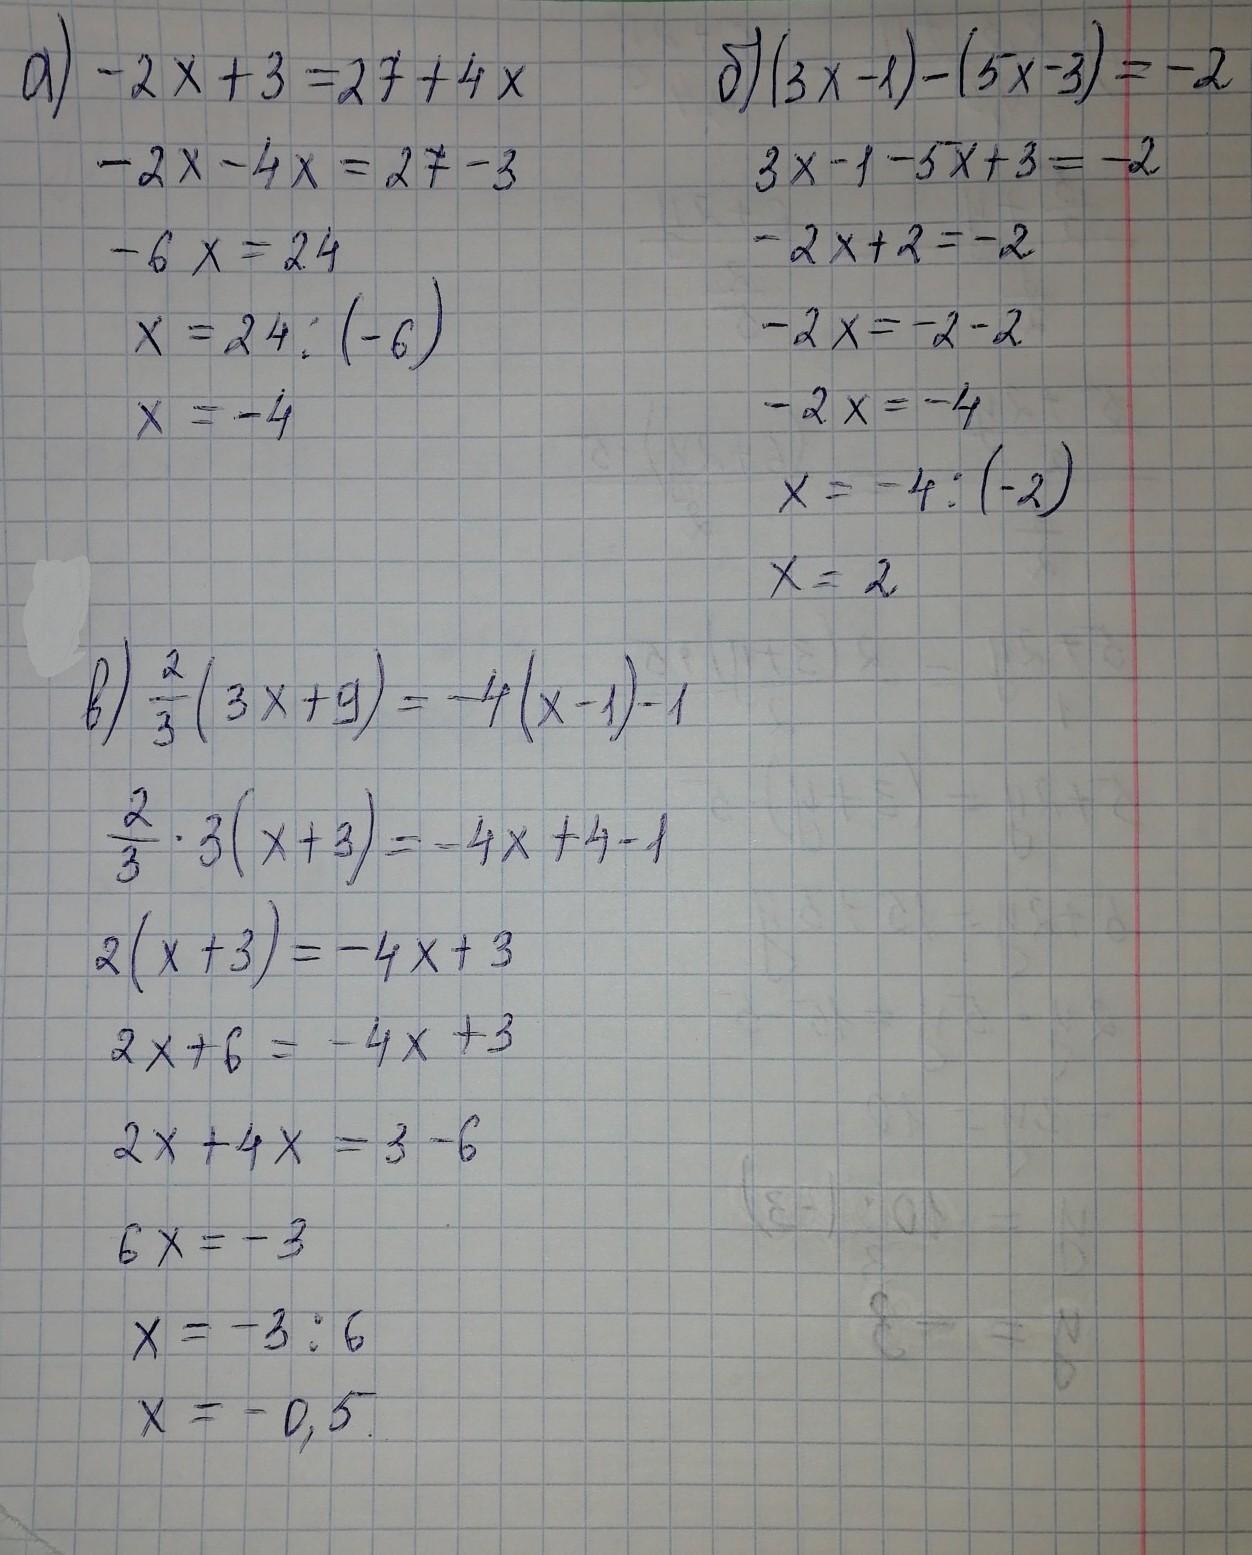 а) -2x+3=27+4x
-2x-4x=27-3
-6x=24
x=24:(-6)
x=-4
б) (3x-1)-(5x-3)=-2
3x-1-5x+3=-2
-2x+2=-2
-2x=-2-2
-2x=-4
x=-4:(-2)
x=2
в) 2/3(3x+9)=-4(x-1)-1
2/3·3(x+3)=-4x+4-1
2(x+3)=-4x+3
2x+6=-4x+3
2x+4x=3-6
6x=-3
x=-3:6
x=-0,5.